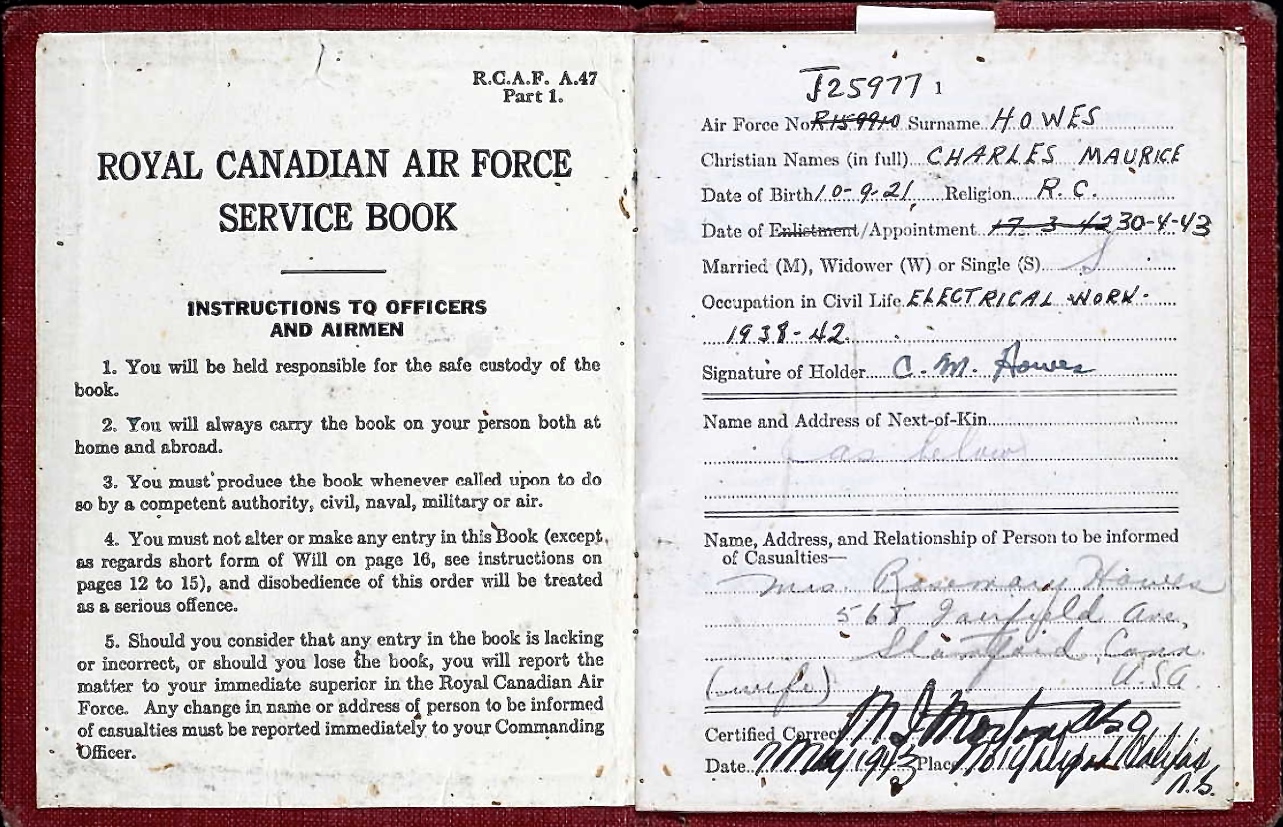 R.C.A.F. A.47
Part 1.
ROYAL CANADIAN AIR FORCE
SERVICE BOOK
INSTRUCTIONS TO OFFICERS
AND AIRMEN
1. You will be held responsible for the safe custody of the
book.
2. You will always carry the book on your person both at
home and abroad.
3. You must produce the book whenever called upon to do
so by a competent authority, civil, naval, military or air.
4. You must not alter or make any entry in this Book (except,
as regards short form of Will on page 16, see instructions on
pages 12 to 15), and disobedience of this order will be treated
as a serious offence.
5. Should you consider that any entry in the book is lacking
or incorrect, or should you lose the book, you will report the
matter to your immediate superior in the Royal Canadian Air
Force. Any change in name or address of person to be informed
of casualties must be reported immediately to your Commanding
Officer.
J25977 1
Air Force No. R159910 Surname HOWES
Christian Names (in full) CHARLES MAURICE
Date of Birth 10-9-21. Religion R.C.
Date of Enlistment/Appointment 17-3-42 30-4-43
Married (M), Widower (W) or Single (S) S
Occupation in Civil Life ELECTRICAL WORK-
1938-42
Signature of Holder C. M. Howes
Name and Address of Next-of-Kin
as below
Name, Address, and Relationship of Person to be informed
of Casualties—
Mrs. Rosemary Howes
568 Fairfield Ave,
Stamford, Conn
(wife) U.S.A.
Certified Correct
Date 7 May 1943 Place Halifax
N.S.